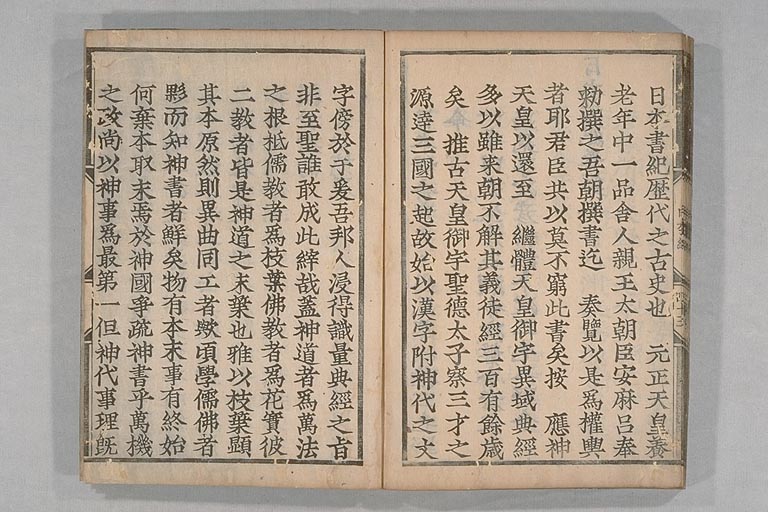 日本書紀歴代之古史也　元正天皇養
老年中一品舎人親王太朝臣安麻呂奉
勑撰之吾朝撰書迄　奏覽以是爲權輿
者耶君臣共以莫不窮此書矣按　應神
天皇以還至　繼體天皇御宇異域典經
多以雖来朝不解其義徒經三百有餘歳
矣　推古天皇御宇聖德太子察三才之
源達三國之起故始以漢字附神代之文
字傍於于爰吾邦人浸得識量典經之旨
非至聖誰敢成此縡哉蓋神道者爲萬法
之根柢儒教者爲枝葉佛教者爲花實彼
二教者皆是神道之末葉也雅以枝葉顯
其本原然則異曲同工者歟頃學儒佛者
夥而知神書者鮮矣物有本末事有終始
何棄本取末焉於神國爭疏神書乎萬機
之政尚以神事爲最第一但神代事理旣